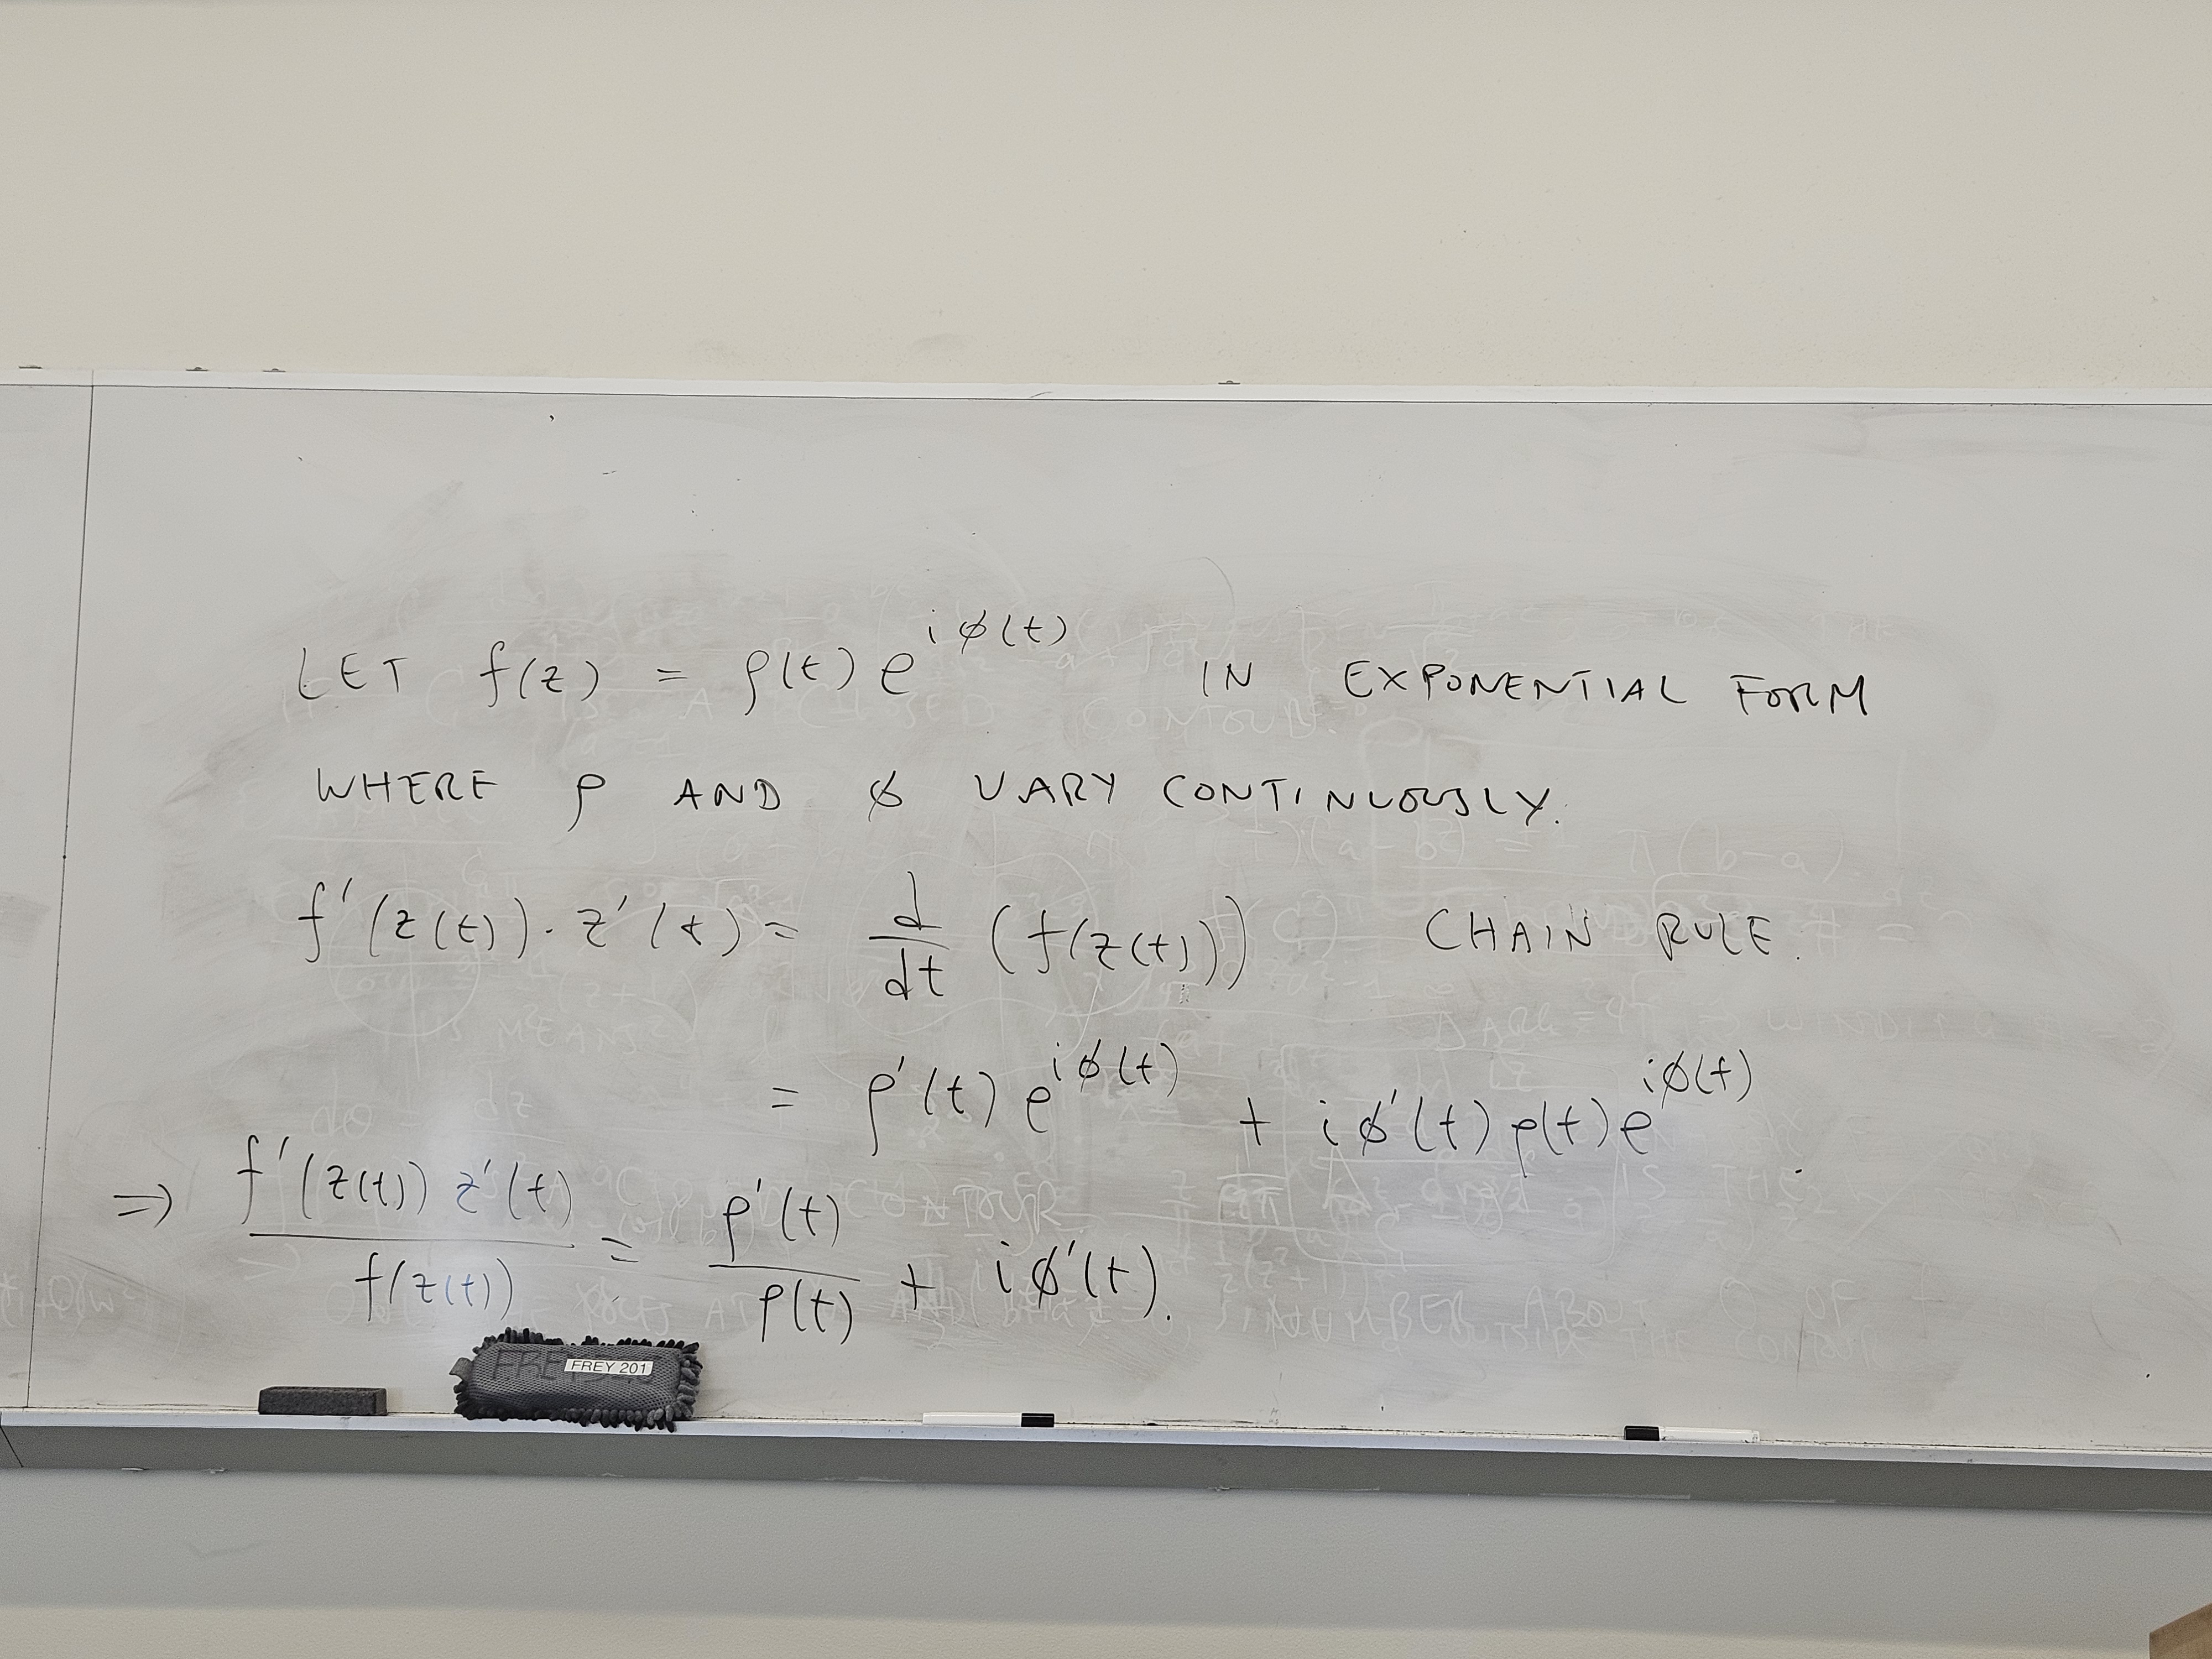 LET f(z) = ρ(t) e^{iϕ(t)} IN EXPONENTIAL FORM
WHERE ρ AND ϕ VARY CONTINUOUSLY.
f'(z(t)) · z'(t) = d/dt (f(z(t))) CHAIN RULE.
= ρ'(t) e^{iϕ(t)} + iϕ'(t) ρ(t) e^{iϕ(t)}.
⇒ f'(z(t)) z'(t) / f(z(t)) = ρ'(t) / ρ(t) + iϕ'(t).
FREY 201